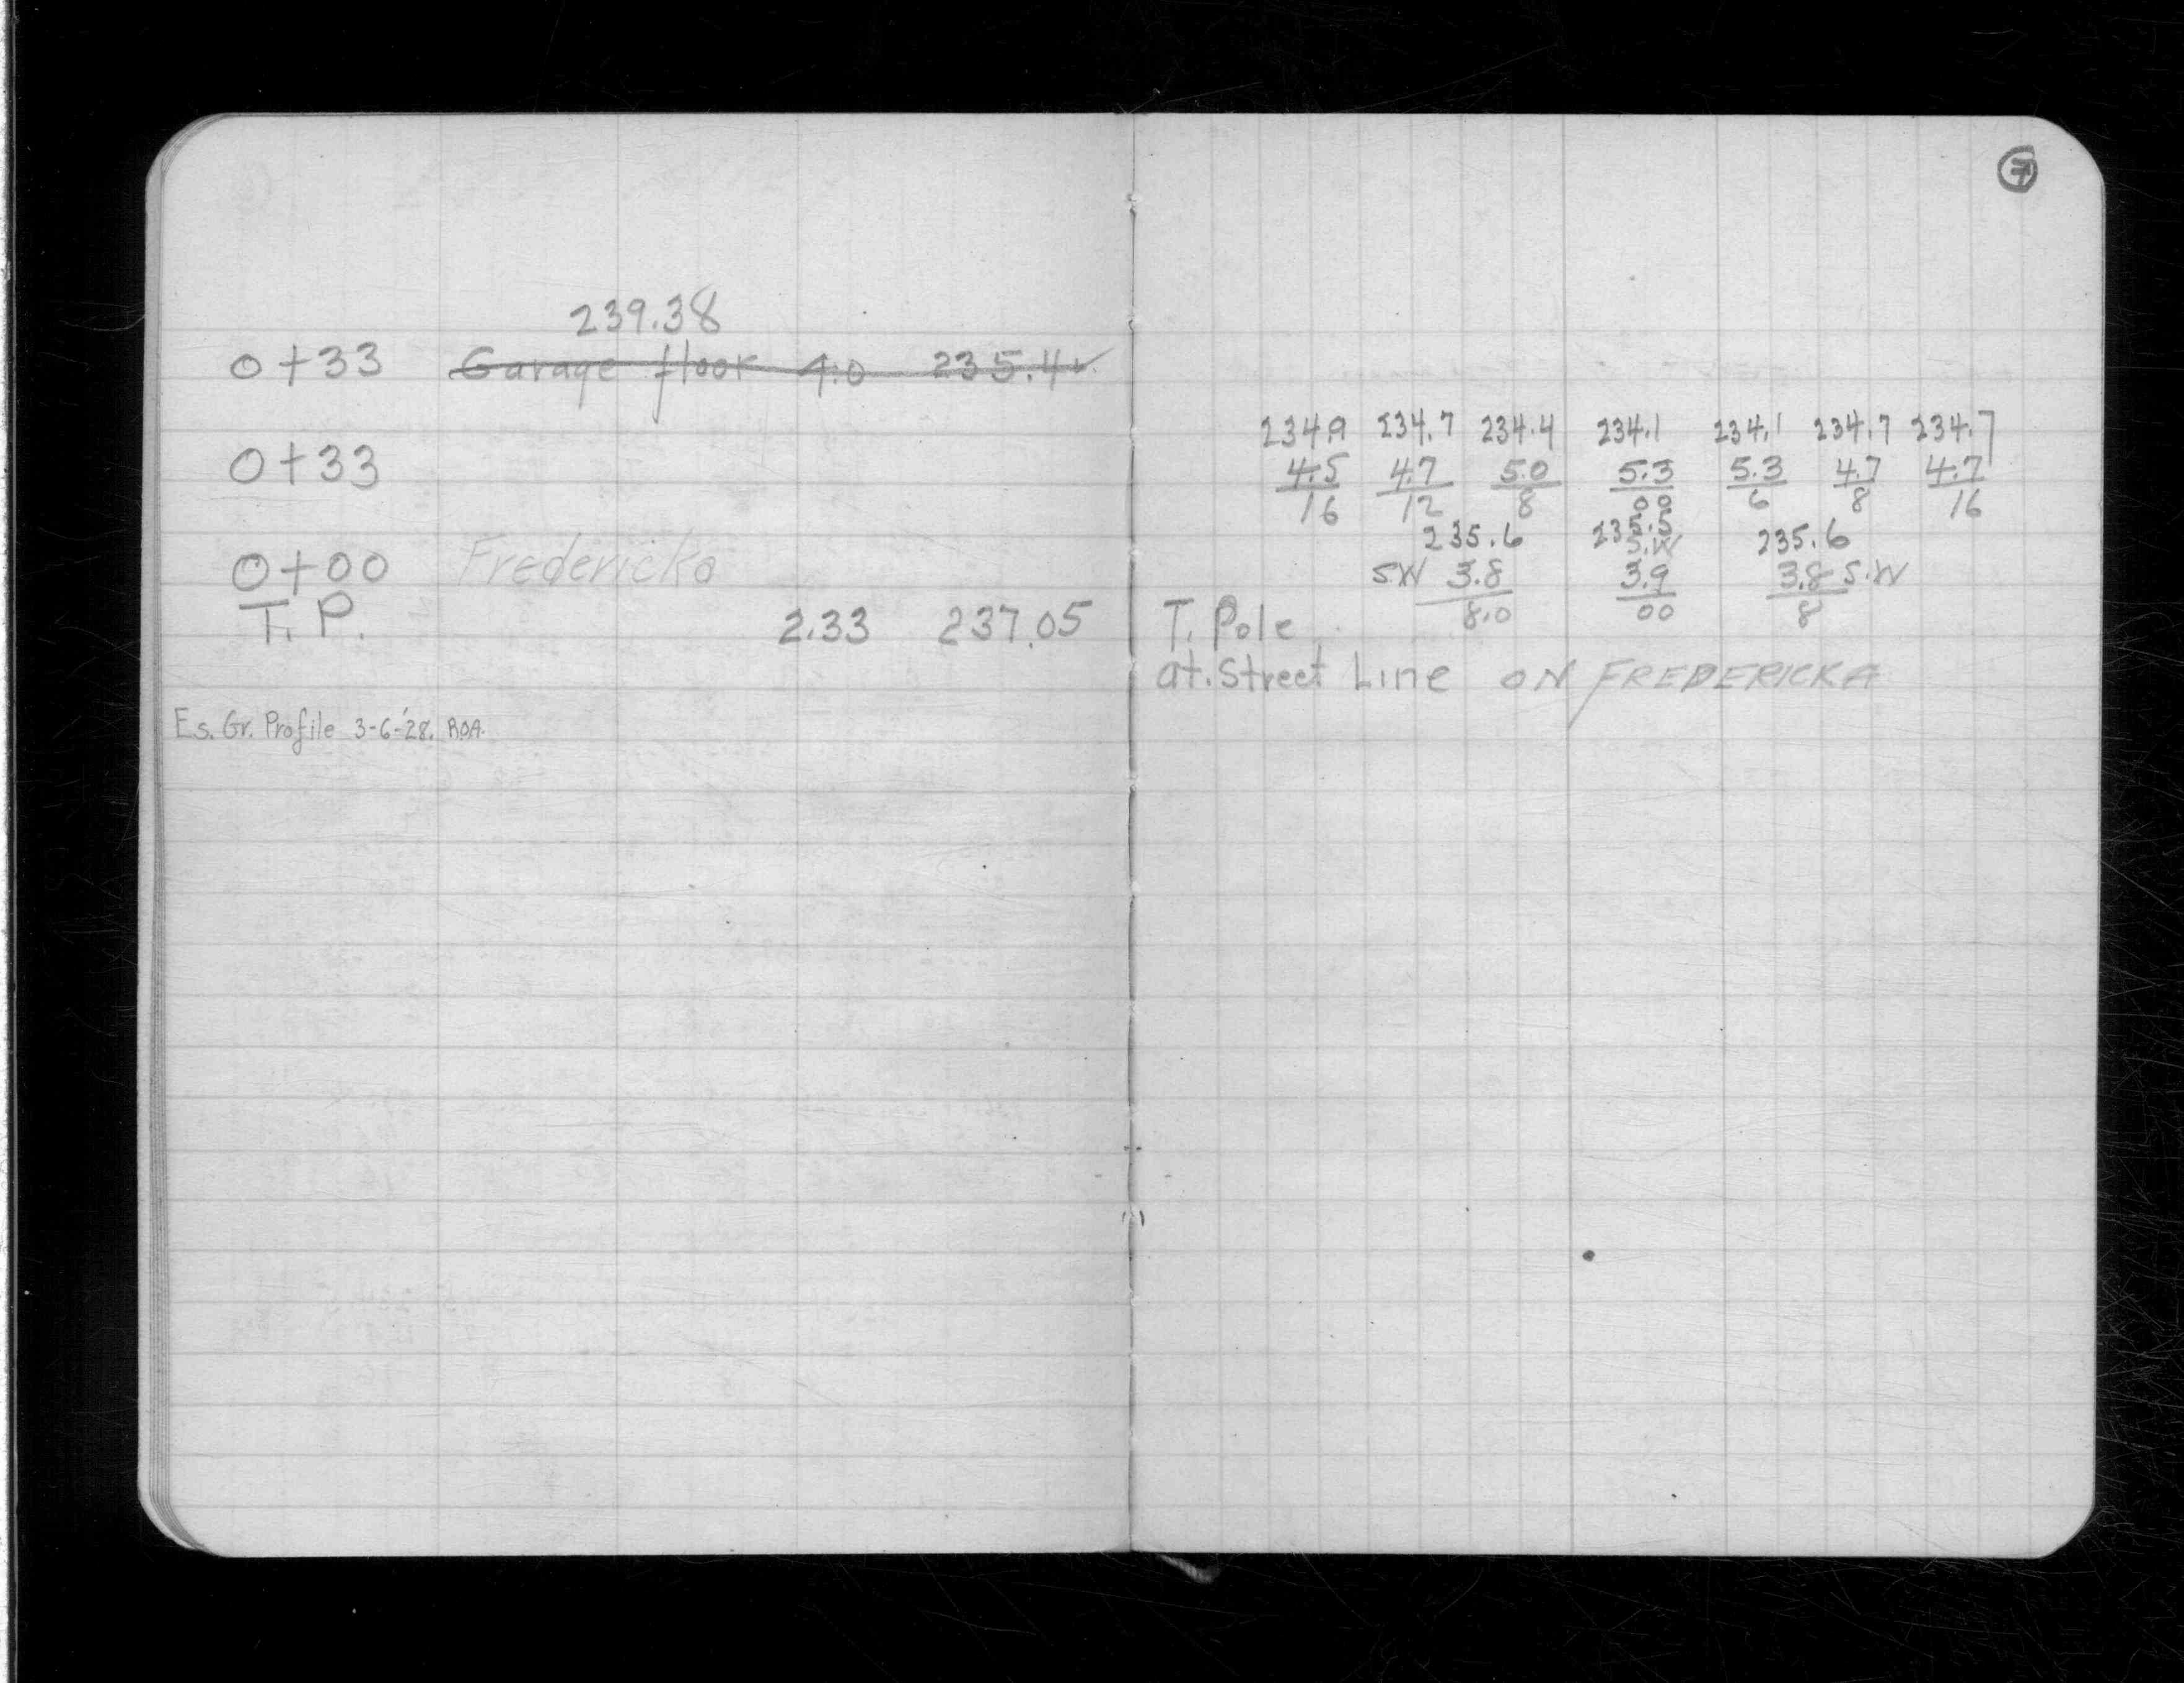 239.38
0+33 Garage floor 4.0 235.4 ✓
0+33
0+00 Fredericka
T.P. 2.33 237.05
Es. Gr. Profile 3-6-'28. ROA.
7
234.9 234.7 234.4 234.1 234.1 234.7 234.7
4.5 4.7 5.0 5.3 5.3 4.7 4.7
16 12 8 00 6 8 16
235.6 235.5 235.6
S.W
SW 3.8 3.9 3.8 S.W
8.0 00 8
T. Pole
at. Street Line ON FREDERICKA